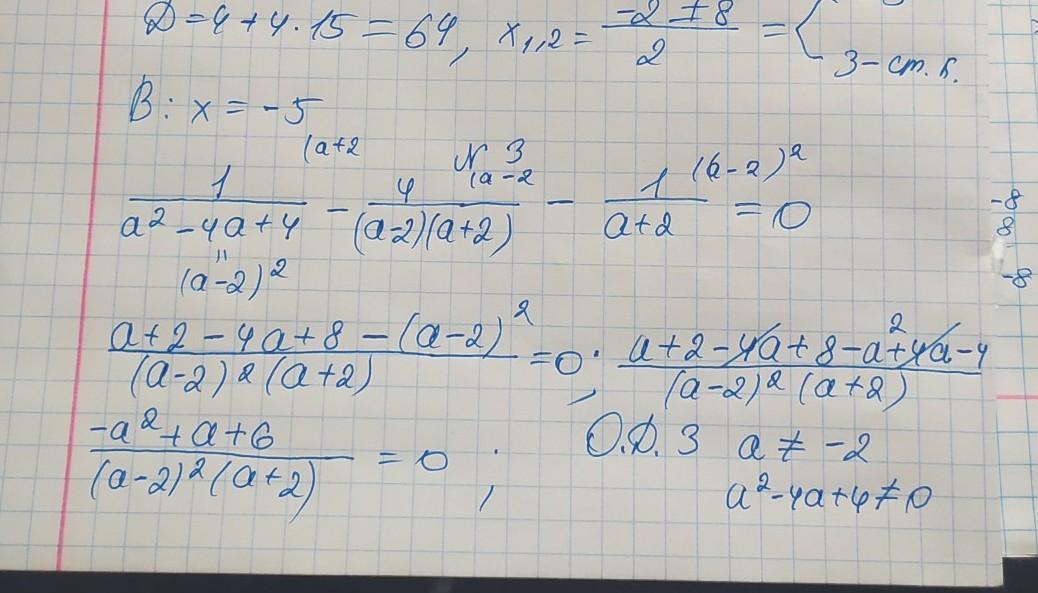 D = 4 + 4 · 15 = 64, x₁,₂ = (-2 ± 8)/2 = {
3 - ст. к.
В: x = -5
N 3
(a+2 (a-2 (a-2)²
1/(a² - 4a + 4) - 4/((a-2)(a+2)) - 1/(a+2) = 0
"
(a-2)²
(a + 2 - 4a + 8 - (a-2)²)/((a-2)²(a+2)) = 0; (a + 2 - 4a + 8 - a² + 4a - 4)/((a-2)²(a+2))
(-a² + a + 6)/((a-2)²(a+2)) = 0 ; О.Д.З a ≠ -2
a² - 4a + 4 ≠ 0
-8
8
-8